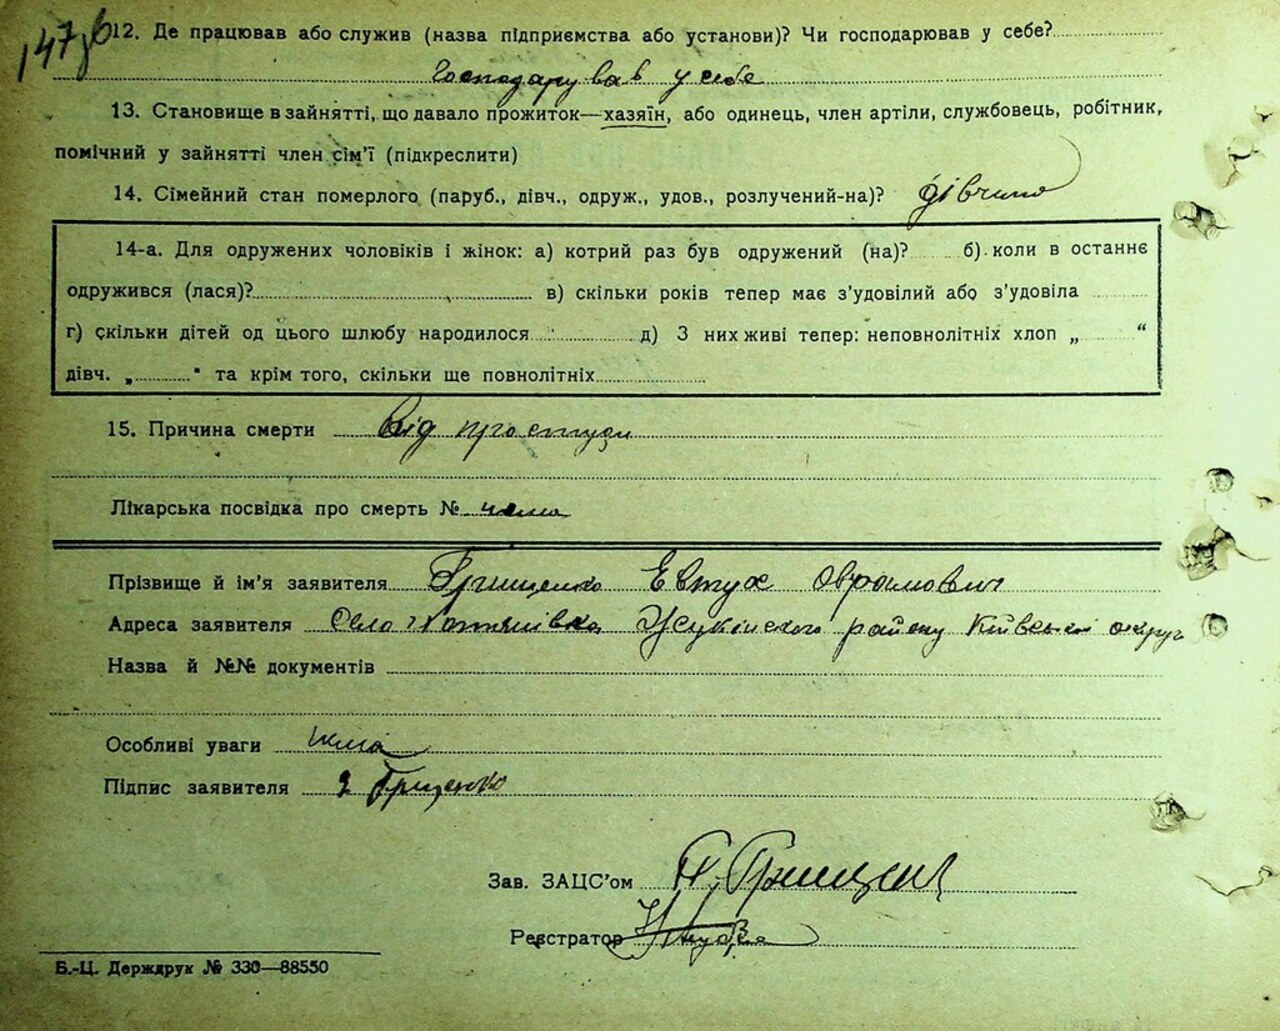 147зв
12. Де працював або служив (назва підприємства або установи)? Чи господарював у себе?
Господарував у себе
13. Становище в зайнятті, що давало прожиток—хазяїн, або одинець, член артілі, службовець, робітник,
помічний у зайнятті член сім'ї (підкреслити)
14. Сімейний стан померлого (паруб., дівч., одруж., удов., розлучений-на)? дівчина
14-а. Для одружених чоловіків і жінок: а) котрий раз був одружений (на)? б) коли в останнє
одружився (лася)? в) скільки років тепер має з'удовілий або з'удовіла
г) скільки дітей од цього шлюбу народилося д) З них живі тепер: неповнолітніх хлоп „ “
дівч. „ “ та крім того, скільки ще повнолітніх
15. Причина смерти Від простуди
Лікарська посвідка про смерть № нема
Прізвище й ім'я заявителя Грищенко Евтух Оврамович
Адреса заявителя Село Хотянівка району Київської округ
Назва й №№ документів
Особливі уваги нема
Підпис заявителя Грищенко
Зав. ЗАЦС'ом
Реєстратор
Б.-Ц. Держдрук № 330—88550